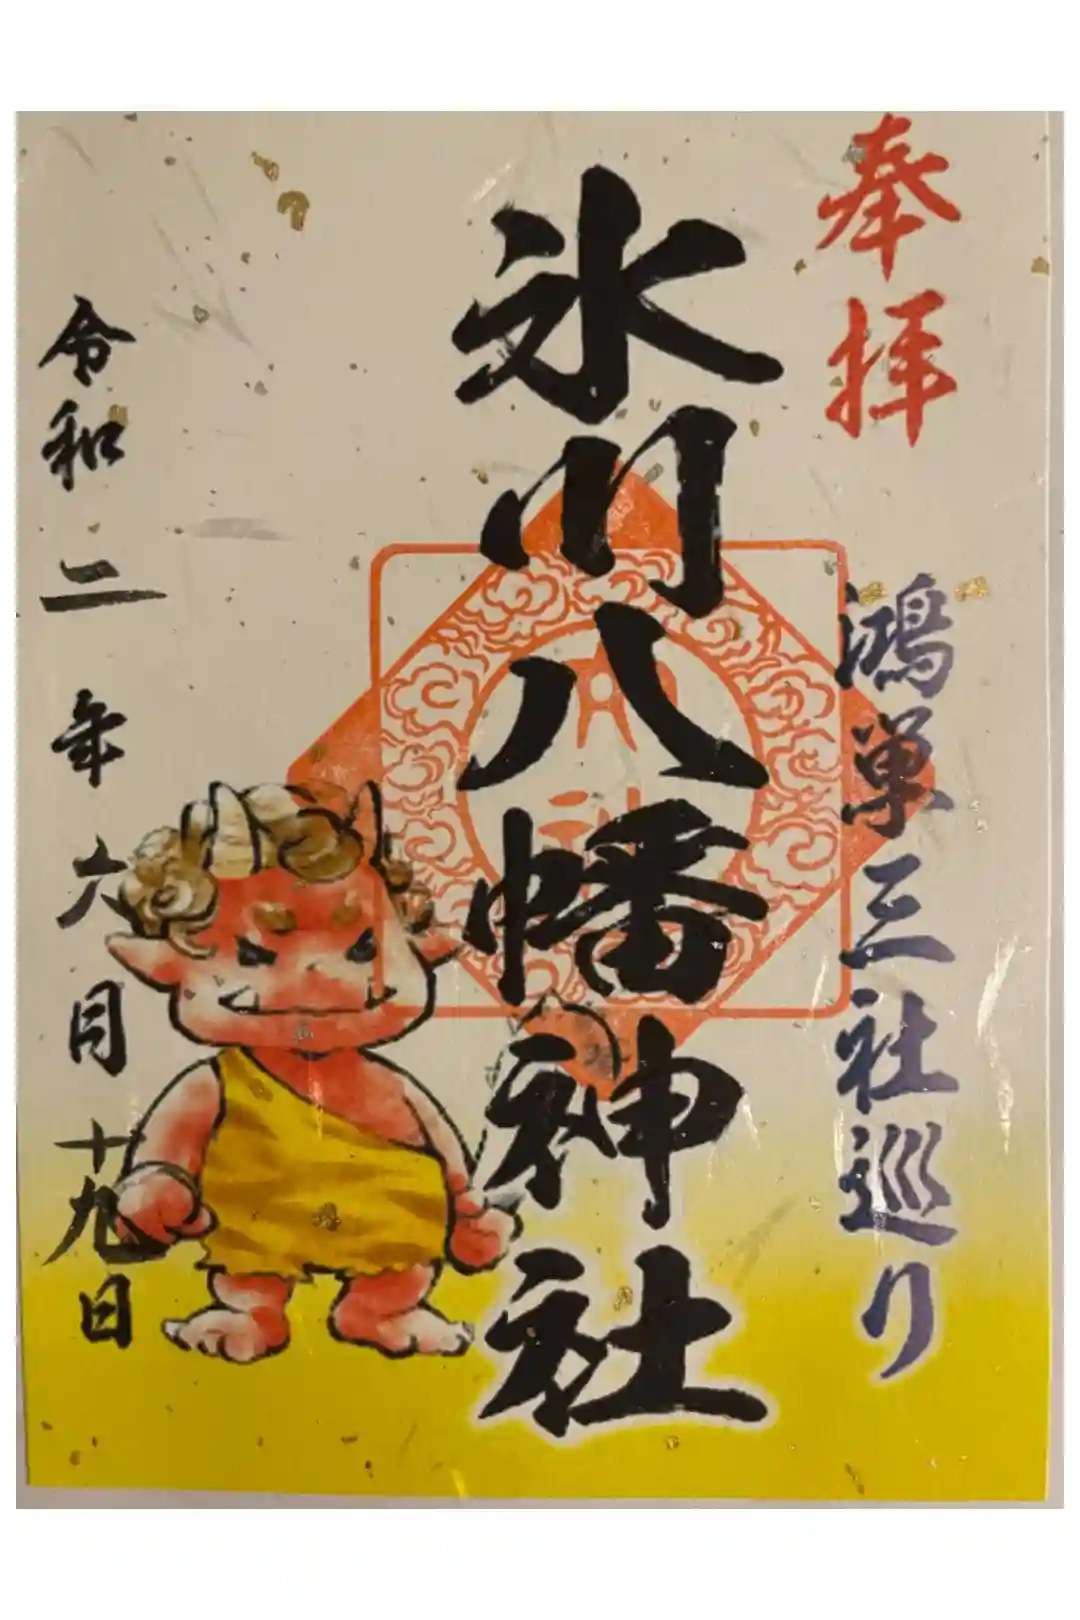 奉拝
鴻巣三社巡り
氷川八幡神社
令和二年六月十九日